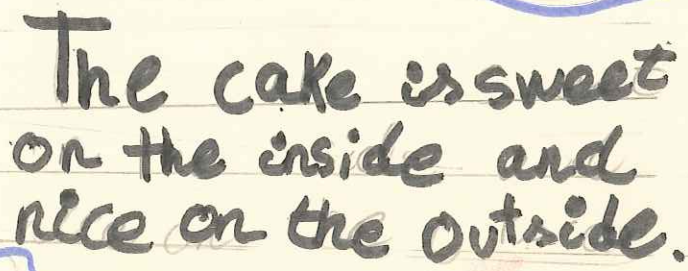 The cake is sweet
on the inside and
nice on the outside.